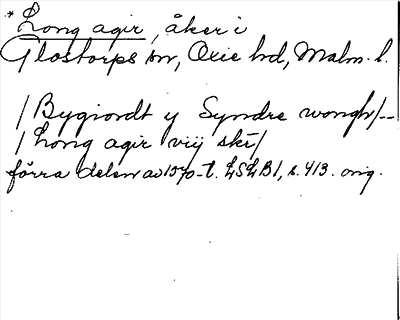 * Long agir, åker i
Glostorps sn, Oxie hd, Malm. l.
/Bygiordt y Syndre wongh/--
/Long agir vij skī/
förra delen av 1570-t. LSLB1, s. 413. orig.